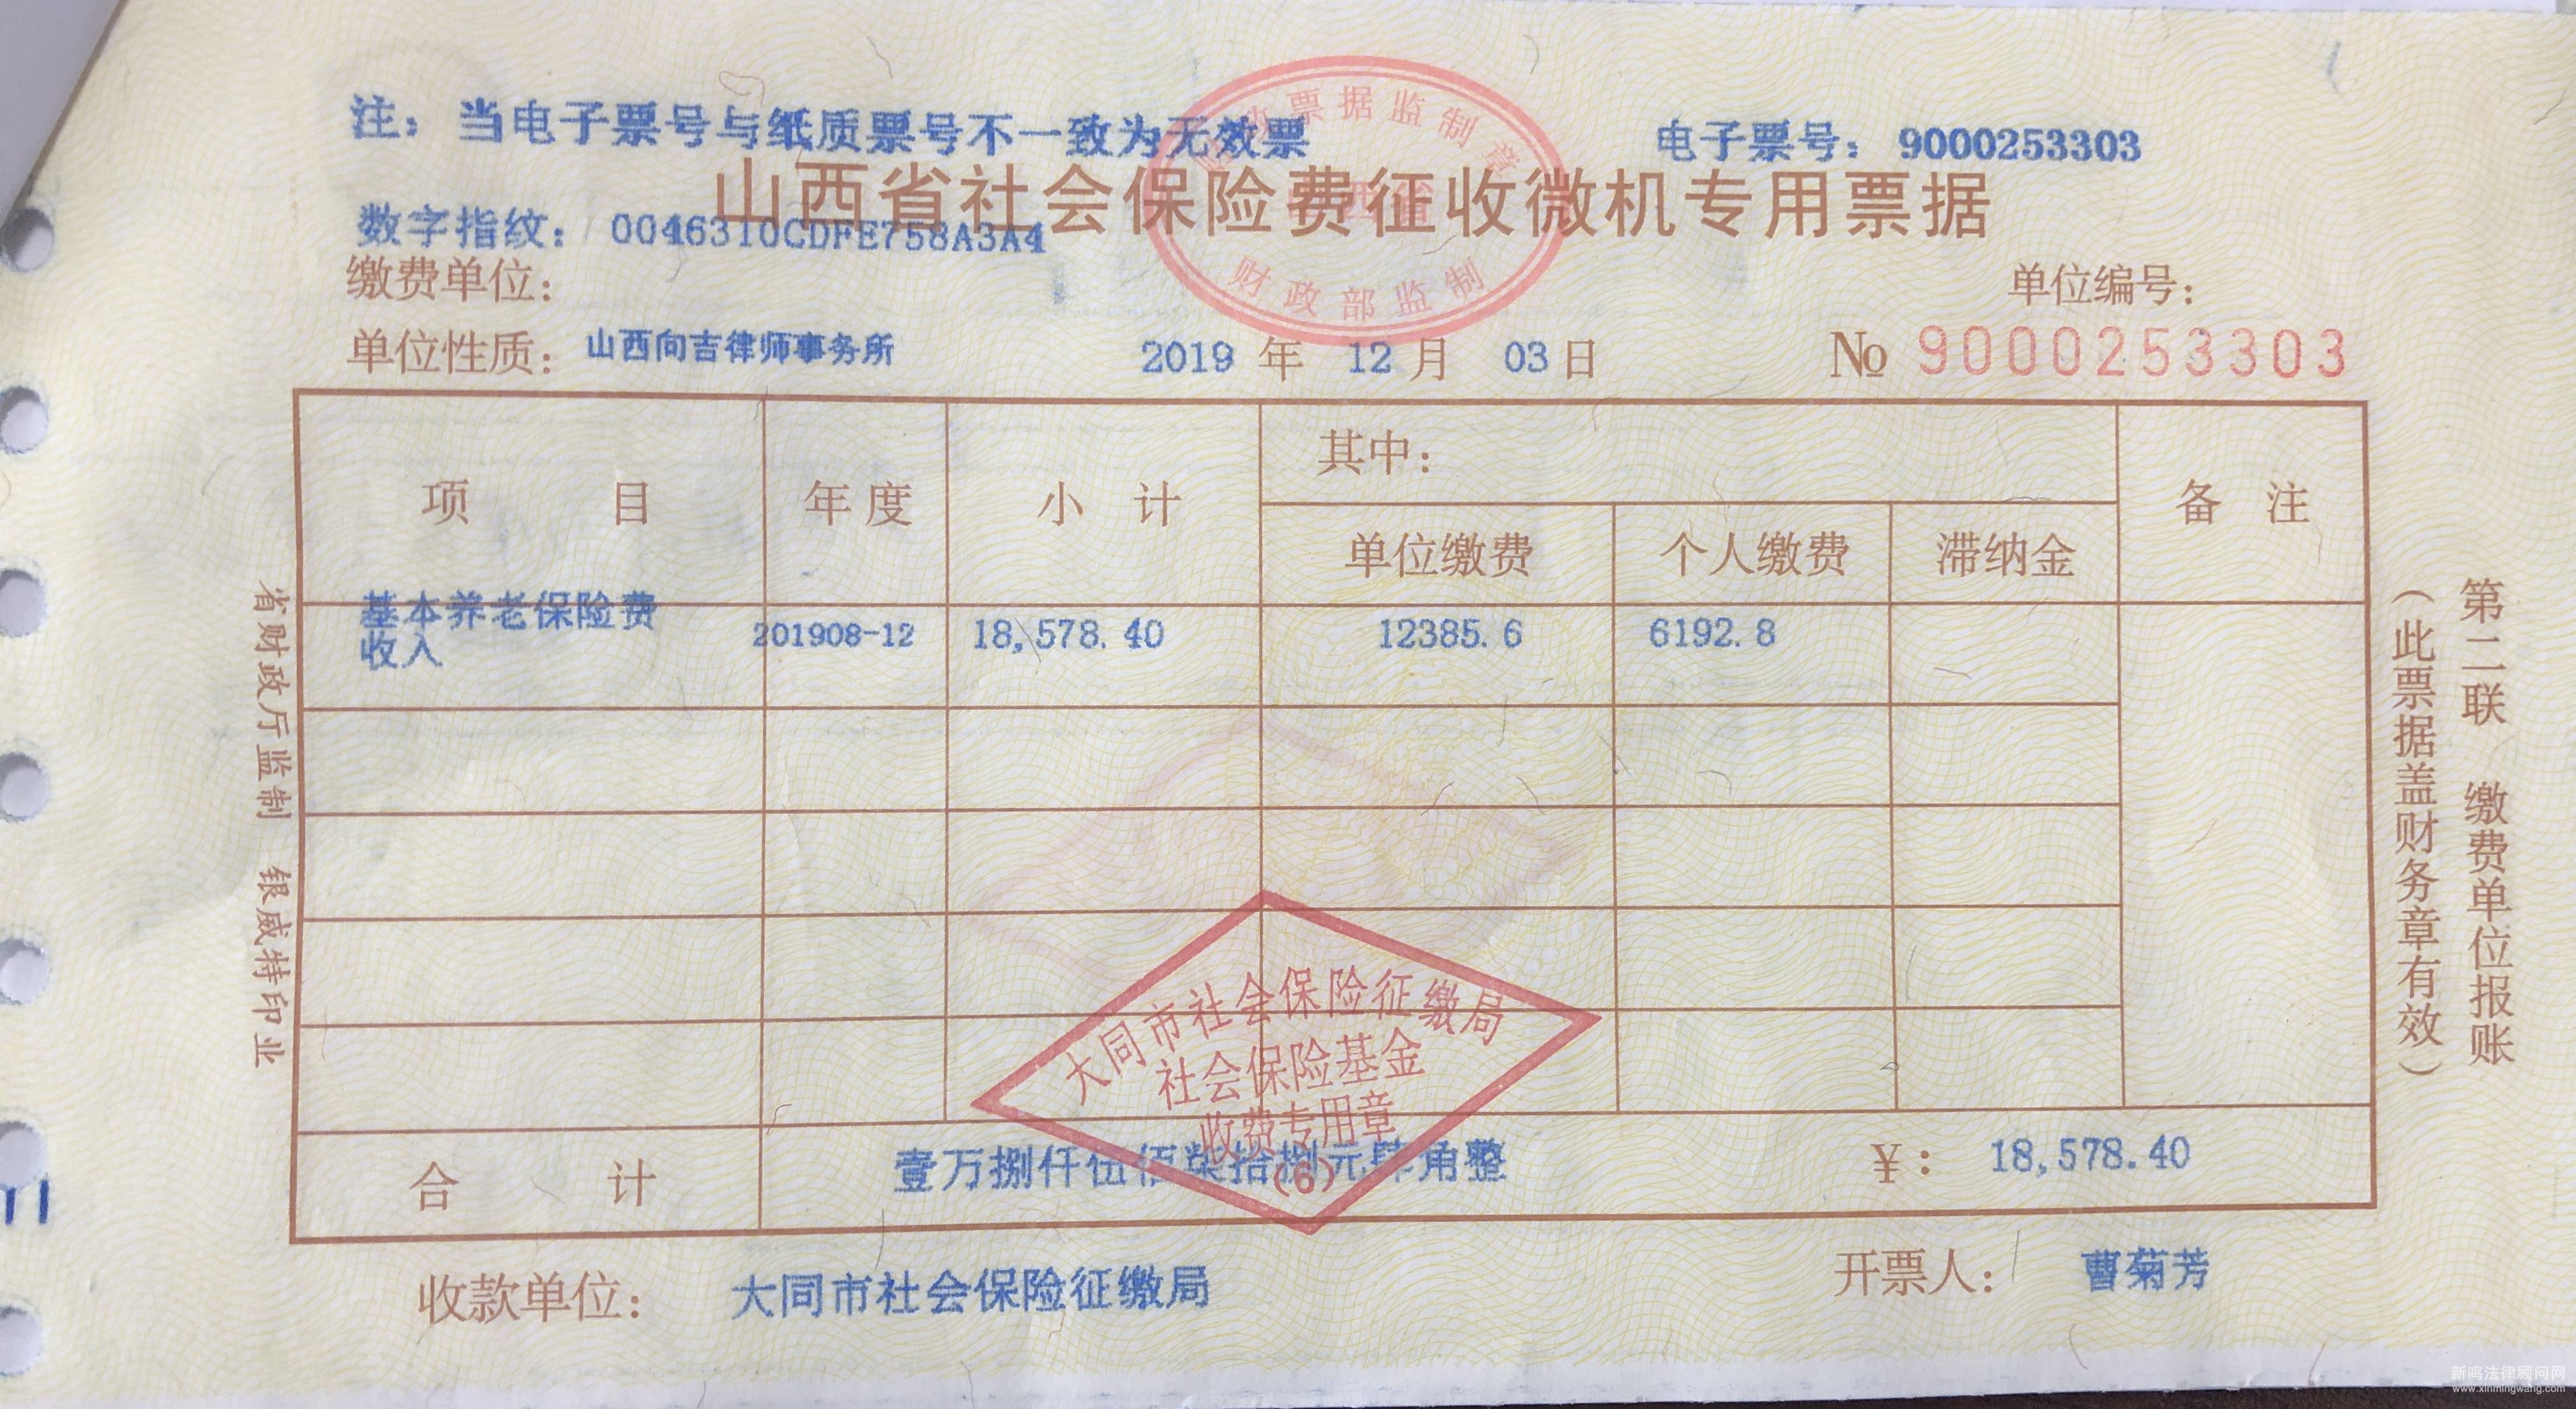 注：当电子票号与纸质票号不一致为无效票
电子票号：9000253303
票据监制章
山西省社会保险费征收微机专用票据
数字指纹：0046310CDFE758A3A4
财政部监制
缴费单位：
单位编号：
单位性质：山西向吉律师事务所
2019 年 12 月 03 日
№ 9000253303
项 目
年度
小 计
其中：
备 注
单位缴费
个人缴费
滞纳金
基本养老保险费
收入
201908-12
18,578.40
12385.6
6192.8
大同市社会保险征缴局
社会保险基金
收费专用章
(6)
合 计
壹万捌仟伍佰柒拾捌元肆角整
￥： 18,578.40
收款单位： 大同市社会保险征缴局
开票人： 曹菊芳
省财政厅监制 银威特印业
第二联 缴费单位报账
（此票据盖财务章有效）
新鸣法律顾问网
www.xinmingwang.com